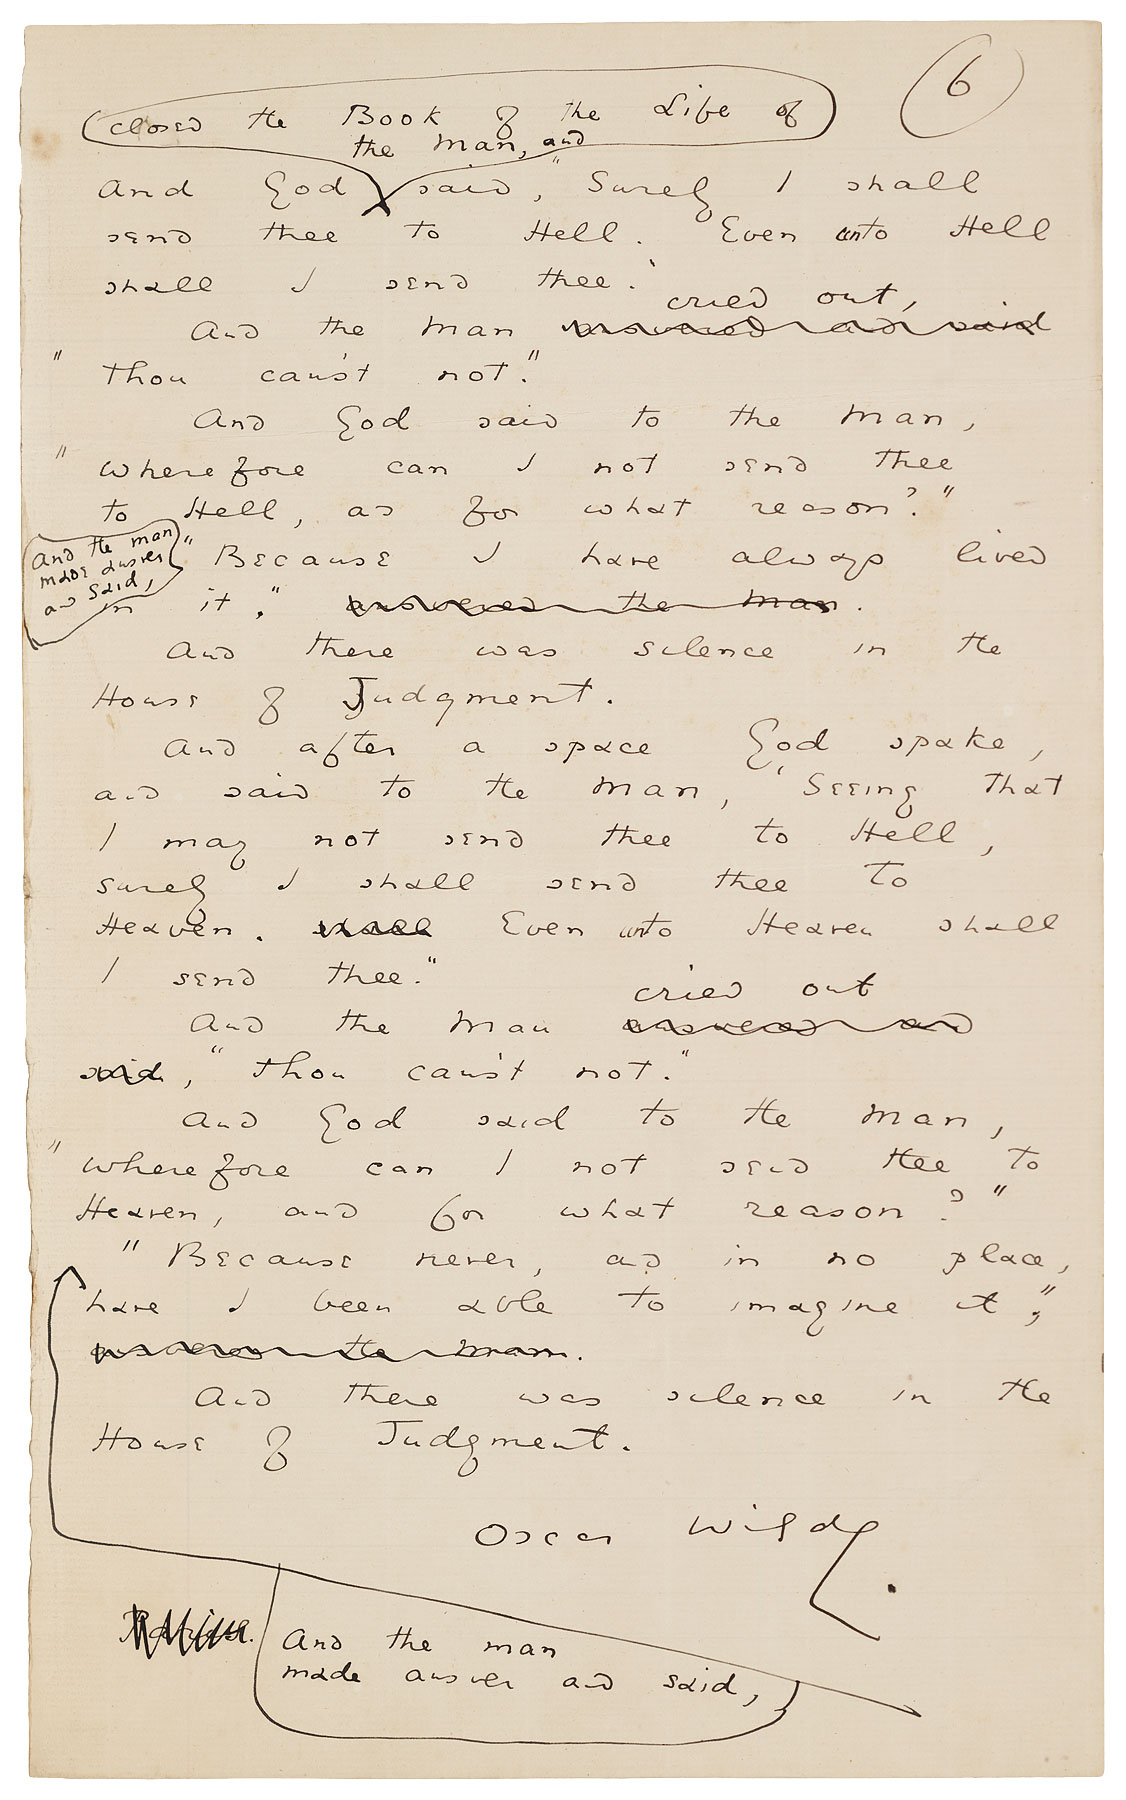 6
closed the Book of the Life of
the Man, and
And God said, "Surely I shall
send thee to Hell. Even unto Hell
shall I send thee.'
cried out,
And the Man answered and said
"Thou cans't not."
And God said to the Man,
"Wherefore can I not send thee
to Hell, and for what reason?"
And the man
made answer
and said,
"Because I have always lived
in it." answered the Man.
And there was silence in the
House of Judgment.
And after a space God spake,
and said to the Man, 'Seeing that
I may not send thee to Hell,
surely I shall send thee to
Heaven. shall Even unto Heaven shall
I send thee."
cried out
And the Man answered and
said, "Thou cans't not."
And God said to the Man,
"Wherefore can I not send thee to
Heaven, and for what reason?"
"Because never, and in no place,
have I been able to imagine it";
answered the Man.
And there was silence in the
House of Judgment.
Oscar Wilde.
And the man
made answer and said,